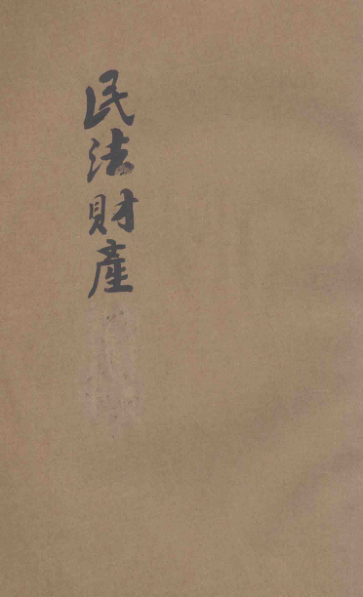 民法財產